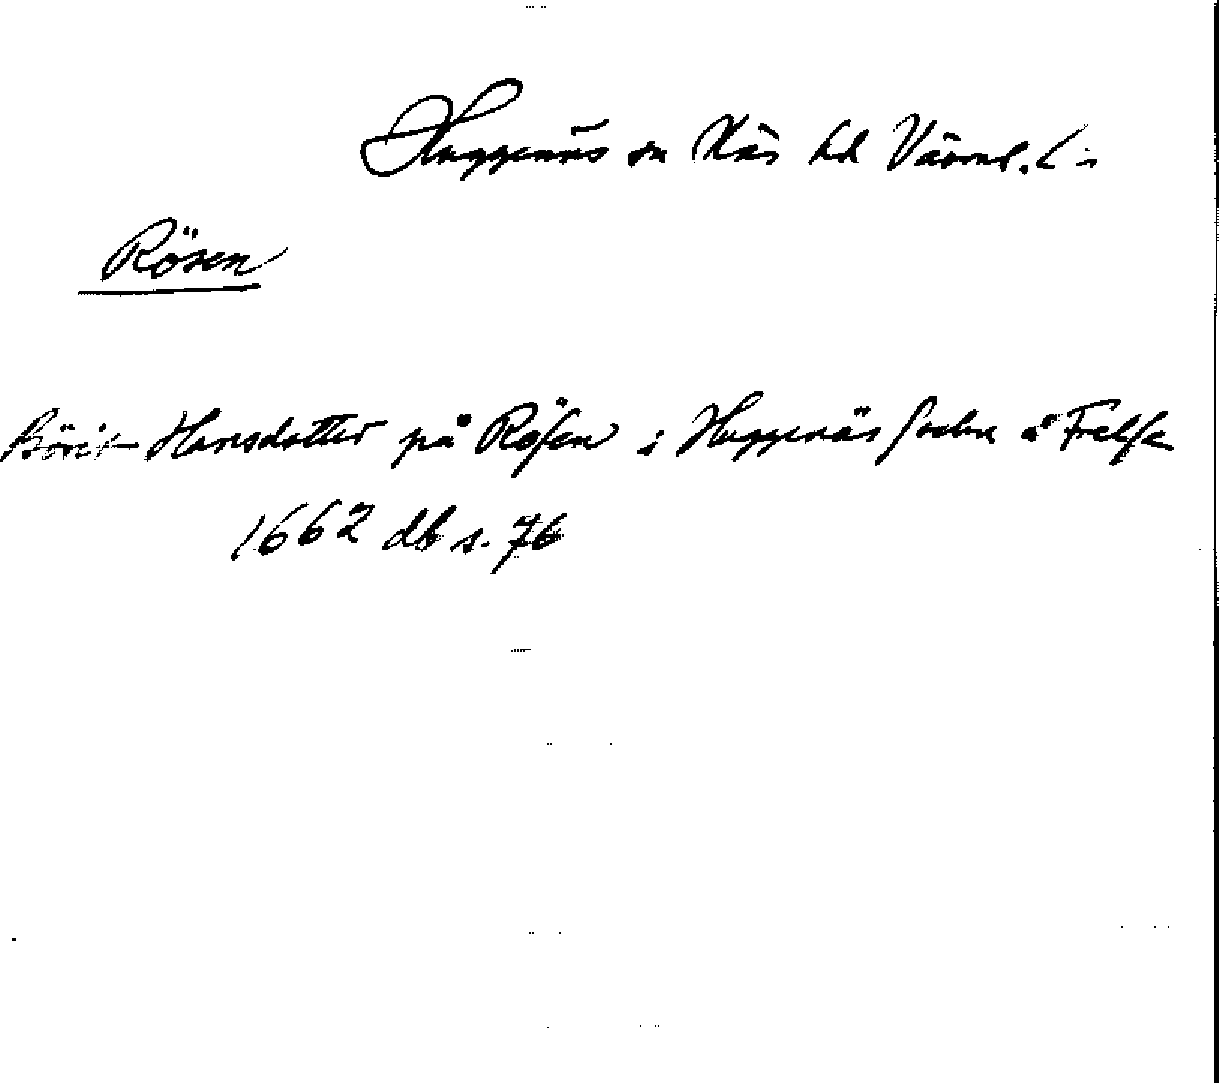 Huggenäs sn Näs hd Värml. L:n
Rösen
Börit Hansdotter på Rösen i Huggenäs Sochn å Frelse
1662 db s. 76